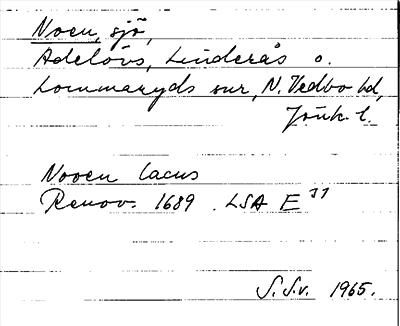 Noen, sjö,
Adelövs, Linderås o.
Lommaryds snr, N. Vedbo hd,
Jönk. l.
Nooen lacus
Renov. 1689. LSA E 31
S.S.v. 1965.